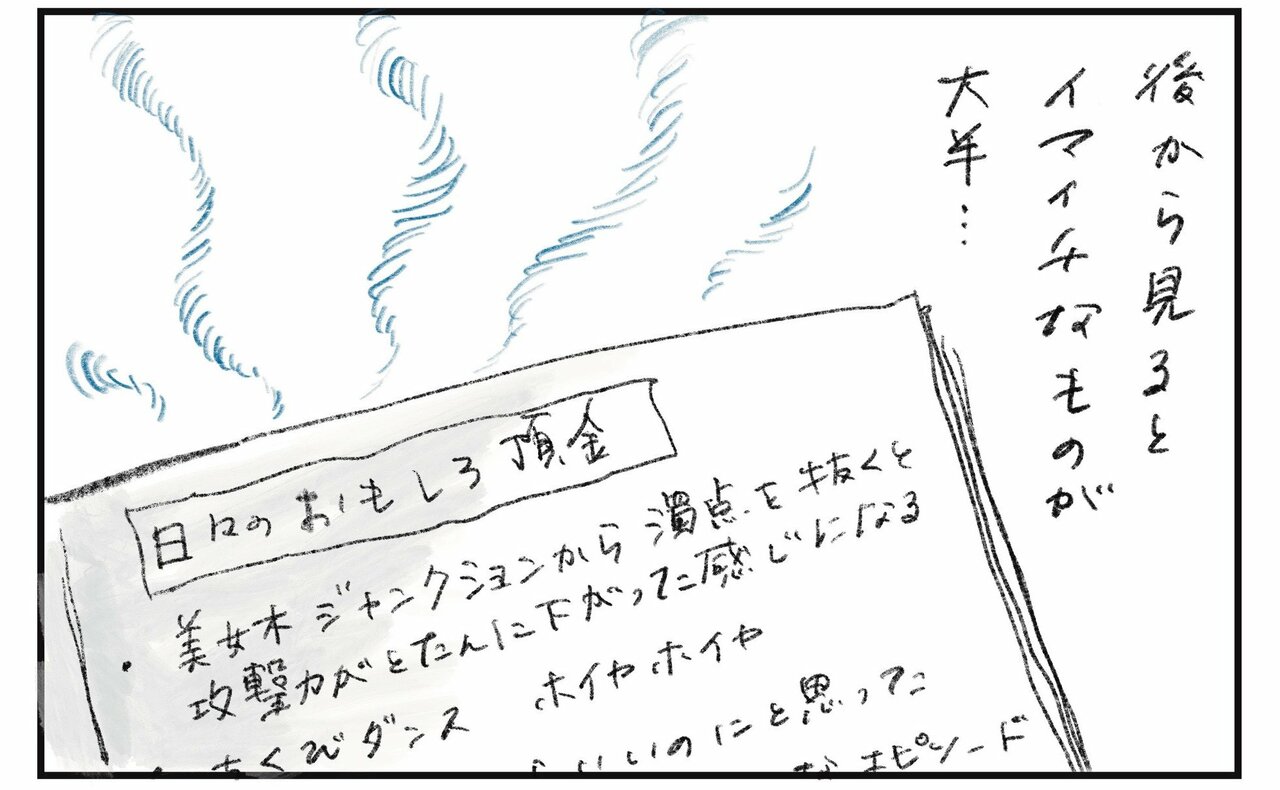 後から見ると
イマイチなものが
大半…
日々のおもしろ預金
・美女木ジャンクションから濁点を抜くと
攻撃力がとたんに下がった感じになる
ちくびダンス ホイヤホイヤ
いいのにと思ってた
なエピソード